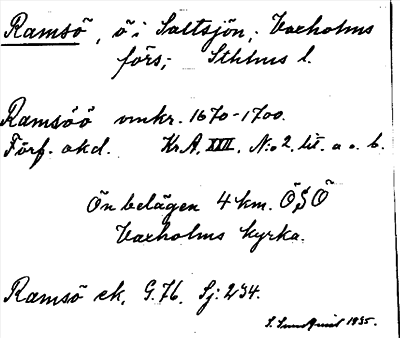 Ramsö, ö i Saltsjön, Vaxholms
förs; Sthlms l.
Ramsöö omkr. 1670-1700.
Förf. okd. Kr.A. XXII. N:o 2. lit. a o. b.
Ön belägen 4 km. ÖSÖ
Vaxholms kyrka.
Ramsö ek. G. 76. Sj: 234.
S. 1935.